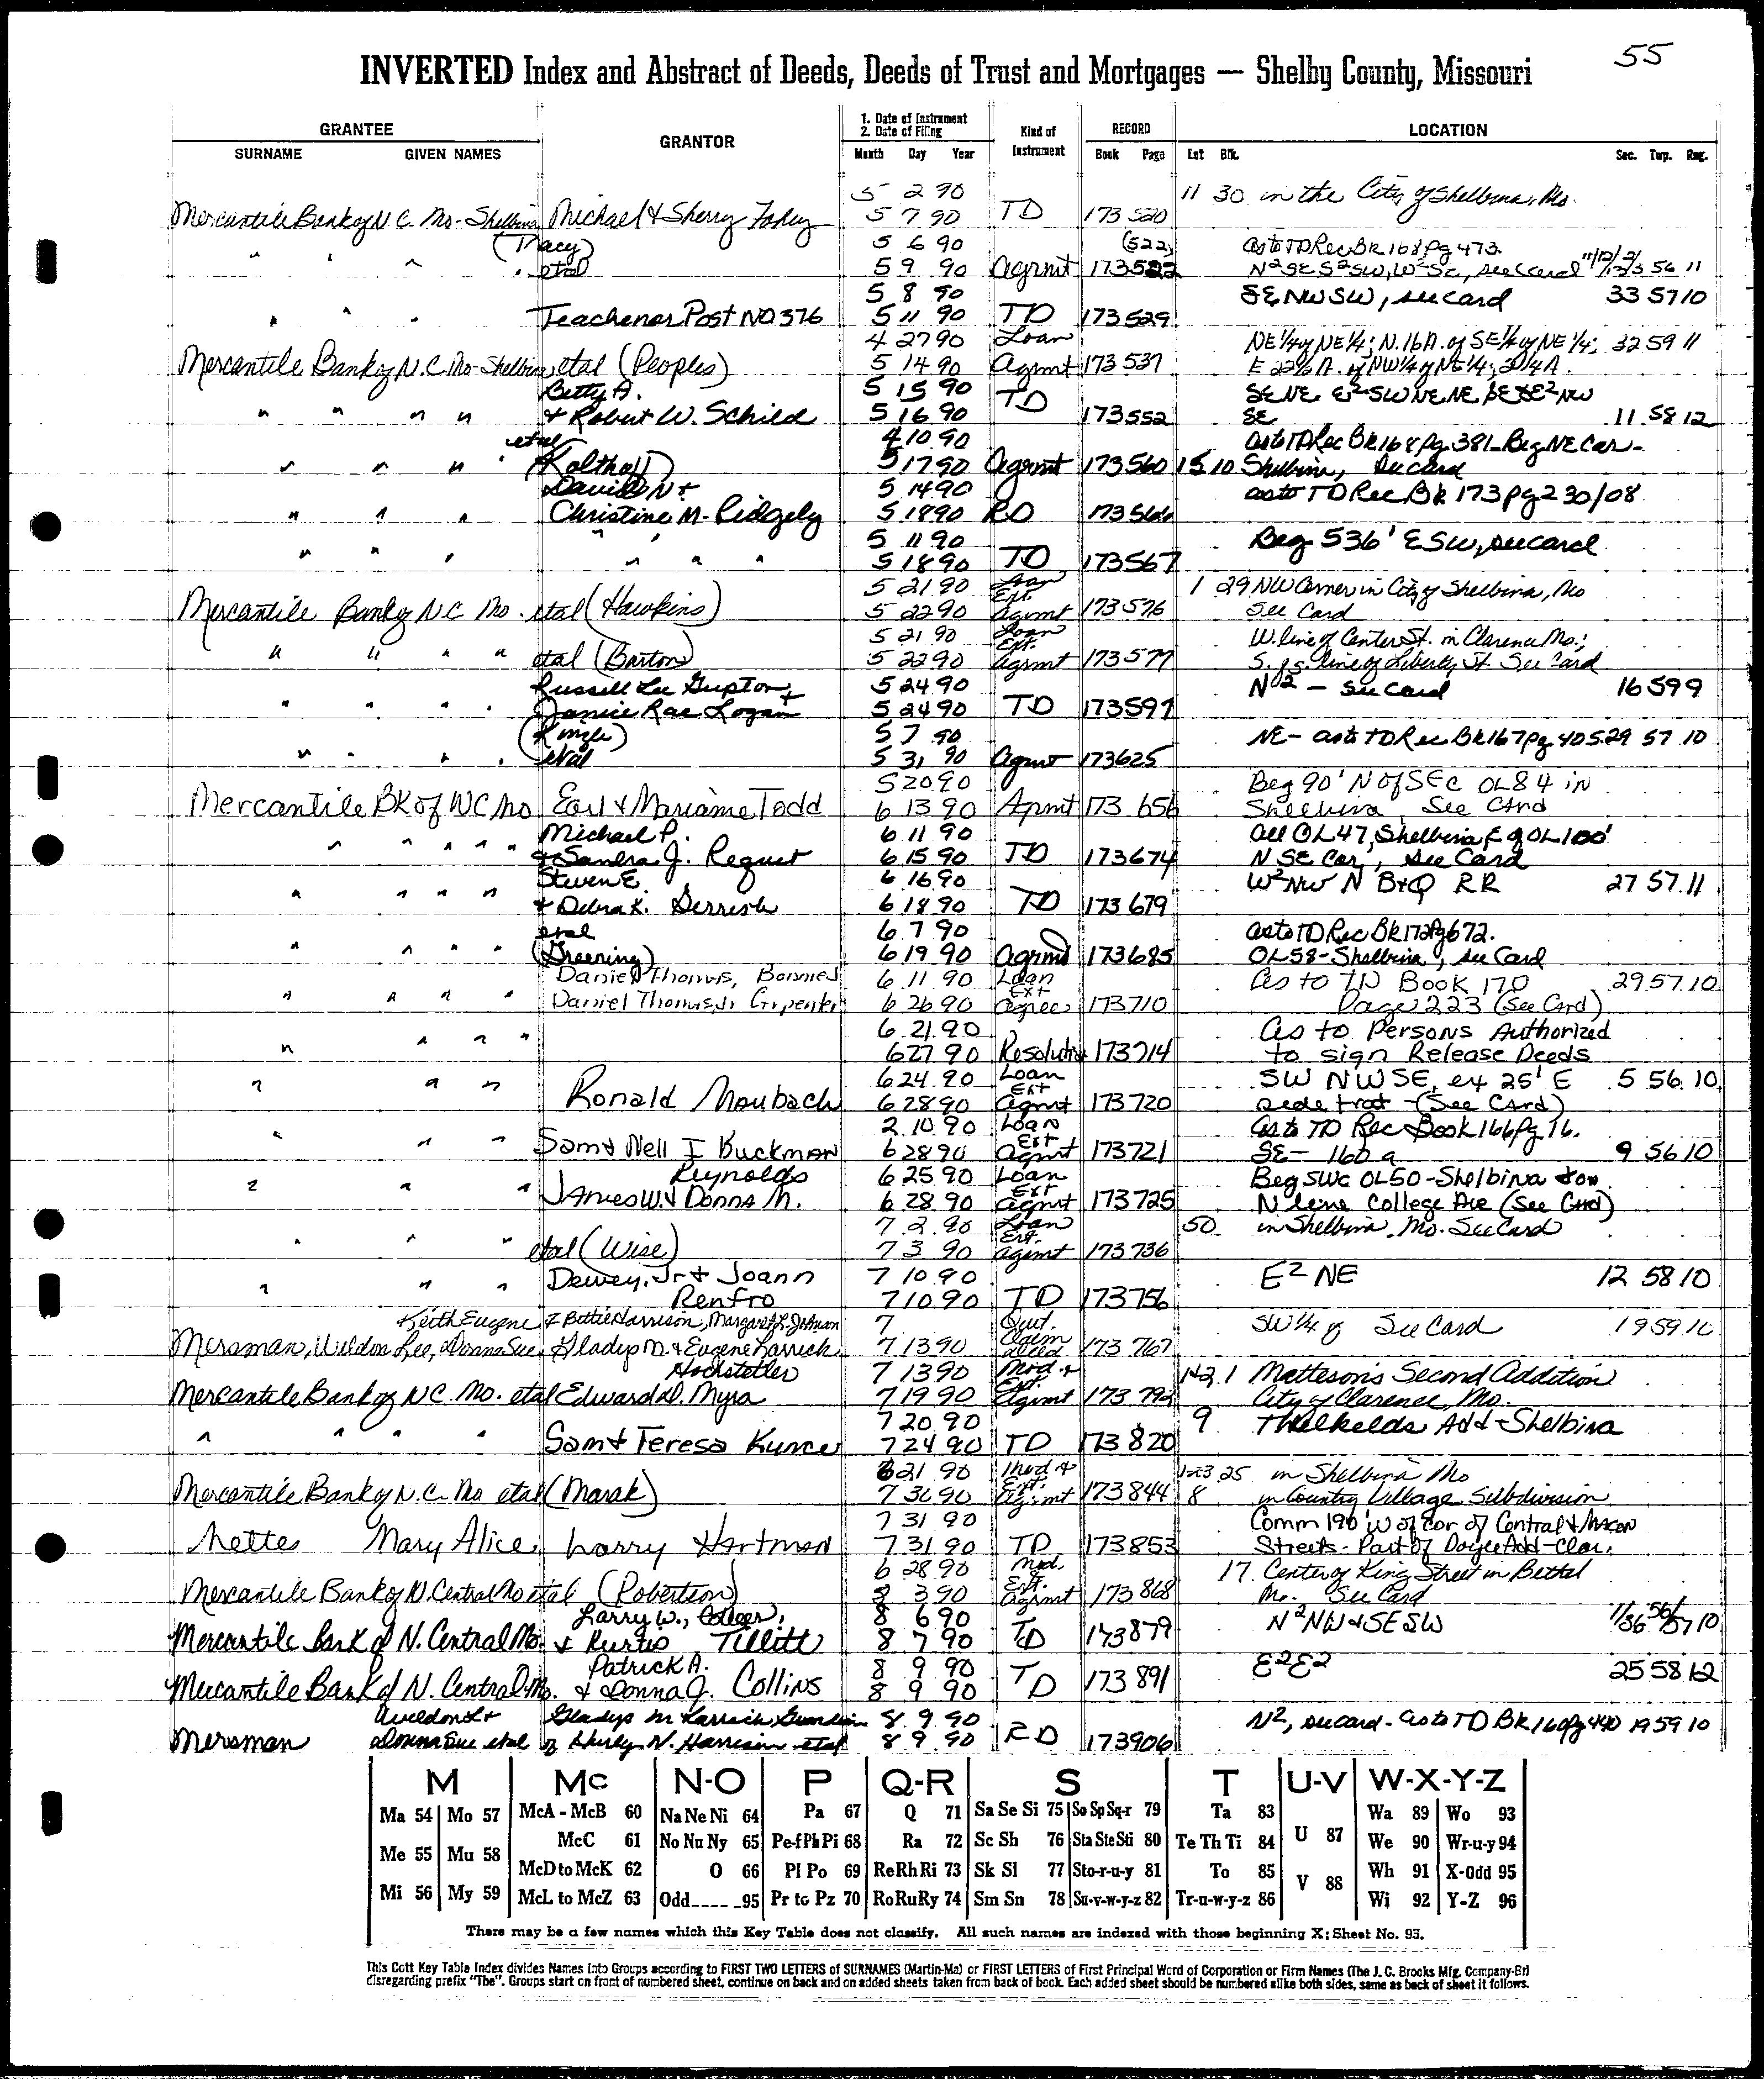 55
INVERTED Index and Abstract of Deeds, Deeds of Trust and Mortgages — Shelby County, Missouri
GRANTEE GRANTOR 1. Date of Instrument 2. Date of Filing Kind of Instrument RECORD LOCATION
SURNAME GIVEN NAMES Month Day Year Book Page Lot Blk. Sec. Twp. Rng.
5 2 90 11 30 in the City of Shelbina, Mo.
Mercantile Bank of N.C. Mo-Shelbina Michael & Sherry Fahey 5 7 90 TD 173 520
(Tracy) 5 6 90 (522) as to TD Rec Bk 168 pg 473.
" " " " etal 5 9 90 Agrmt 173 522 N2 SE S2 SW, W2 SE, see card 11/12/2/3 56 11
5 8 90 SE NW SW, see card 33 57 10
" " " Teachenor Post NO 376 5 11 90 TD 173 529
4 27 90 Loan NE 1/4 of NE 1/4; N. 16A. of SE 1/4 of NE 1/4; 32 59 11
Mercantile Bank of N.C. Mo-Shelbina etal (Peoples) 5 14 90 Agmt 173 537 E 22 1/2 A. of NW 1/4 of NE 1/4; 2 1/4 A.
Betty A. 5 15 90 TD SE NE E2 SW NE NE SE & E2 NW
" " " " & Robert W. Schild 5 16 90 173 552 SE 11 58 12
etal 4 10 90 as to TD Rec Bk 168 pg 381 - Beg NE Cor -
" " " " (Kolthoff) 5 17 90 Agrmt 173 560 15 10 Shelbina, see card
David N & 5 14 90 as to TD Rec Bk 173 pg 230/08
" " " Christine M. Ridgely 5 18 90 RD 173 566
5 11 90 Beg 536' E SW, see card
" " " " " " 5 18 90 TD 173 567
5 21 90 Loan Ext. 1 29 NW Corner in City of Shelbina, Mo
Mercantile Bank of N C Mo. etal (Hawkins) 5 22 90 agmt 173 576 See Card
5 21 90 Loan Ext. W. line of Center St. in Clarence Mo.;
" " " " etal (Barton) 5 22 90 agrmt 173 577 S. line of Liberty St. See Card
Russell Lee Gupton & 5 24 90 N2 - see card 16 59 9
" " " " Janice Rae Logan 5 24 90 TD 173 597
5 7 90 NE - as to TD Rec Bk 167 pg 405 29 57 10
" " " " etal 5 31 90 Agmt 173 625
5 20 90 Beg 90' N of SEc OL 84 in
Mercantile BK of NC Mo Earl & Mariame Todd 6 13 90 Agmt 173 656 Shelbina, See Card
Michael P. 6 11 90 all OL 47, Shelbina, E of OL 100'
" " " " " & Sandra J. Requet 6 15 90 TD 173 674 N SE Cor, see card
Steven E. 6 16 90 W2 NW N B&Q RR 27 57 11
" " " " & Debra K. Gerrish 6 18 90 TD 173 679
etal 6 7 90 as to TD Rec Bk 172 pg 672.
" " " " (Greening) 6 19 90 Agrmt 173 685 OL 58 - Shelbina, see card
Daniel Thomas, Bonnie J 6 11 90 Loan Ext As to TD Book 170 29 57 10
" " " " Daniel Thomas Jr Carpenter 6 26 90 Agree 173 710 Page 223 (See Card)
6 21 90 As to Persons Authorized
" " " " 6 27 90 Resolution 173 714 to sign Release Deeds
6 24 90 Loan Ext SW NW SE, ex 25' E 5 56 10
" " " Ronald Maubach 6 28 90 Agmt 173 720 side trat - (See Card)
2 10 90 Loan Ext As to TD Rec Book 166 pg 76.
" " " Sam & Nell I Buckman 6 28 90 Agmt 173 721 SE - 160 a 9 56 10
Reynolds 6 25 90 Loan Ext Beg SWc OL 50 - Shelbina & on
" " " James W. & Donna M. 6 28 90 Agmt 173 725 N line College Ave (See Card)
7 2 90 Loan Ext. 50 in Shelbina, Mo. See Card
" " " etal (Wise) 7 3 90 agmt 173 736
Dewey, Jr & Joann 7 10 90 E2 NE 12 58 10
" " " Renfro 7 10 90 TD 173 756
Keith Eugene & Bettie Harrison, Margaret L. Johnson 7 Quit Claim SW 1/4 of See Card 19 59 10
Mersman, Weldon Lee, Donna Sue, Gladys M. & Eugene Larrick 7 13 90 Deed 173 767
Hochstetler 7 13 90 Mod & Ext. 1&2 1 Matteson's Second Addition
Mercantile Bank of N C. Mo. etal Edward D. Myra 7 19 90 Agmt 173 792 City of Clarence, Mo.
7 20 90 9 Thelkelds Add - Shelbina
" " " " Sam & Teresa Kunce 7 24 90 TD 173 820
6 21 90 Mod & Ext. 1-2-3 25 in Shelbina Mo
Mercantile Bank of N.C. Mo etal (Marak) 7 30 90 Agrmt 173 844 8 in Country Village Subdivision
7 31 90 Comm 190' W of cor of Central & Macon
Nettes Mary Alice Larry Hartman 7 31 90 TD 173 853 Streets - Part of Doyle Add - Clar.
6 28 90 Mod. Ext. 17. Center of King Street in Bethel
Mercantile Bank of N Central Mo etal (Robertson) 8 3 90 Agrmt 173 868 Mo. See Card
Larry W., Colleen, 8 6 90 N2 NW & SE SW 1/36 56/57 10
Mercantile Bank of N. Central Mo. & Kurtis Tillitt 8 7 90 TD 173 879
Patrick A. 8 9 90 E2 E2 25 58 12
Mercantile Bank of N. Central Mo. & Donna J. Collins 8 9 90 TD 173 891
Weldon L & Gladys M Larrick Guardian 8 9 90 N2, see card - as to TD Bk 160 pg 440 19 59 10
Mersman Donna Sue etal of Shirley N. Harrison etal 8 9 90 RD 173 906
M Mc N-O P Q-R S T U-V W-X-Y-Z
Ma 54 Mo 57 McA - McB 60 Na Ne Ni 64 Pa 67 Q 71 Sa Se Si 75 So Sp Sq-r 79 Ta 83 U 87 Wa 89 Wo 93
Me 55 Mu 58 McC 61 No Nu Ny 65 Pe-f Ph Pi 68 Ra 72 Sc Sh 76 Sta Ste Sti 80 Te Th Ti 84 We 90 Wr-u-y 94
McD to McK 62 O 66 Pl Po 69 Re Rh Ri 73 Sk Sl 77 Sto-r-u-y 81 To 85 V 88 Wh 91 X-Odd 95
Mi 56 My 59 McL to McZ 63 Odd_____95 Pr to Pz 70 Ro Ru Ry 74 Sm Sn 78 Su-v-w-y-z 82 Tr-u-w-y-z 86 Wi 92 Y-Z 96
There may be a few names which this Key Table does not classify. All such names are indexed with those beginning X; Sheet No. 95.
This Cott Key Table Index divides Names Into Groups according to FIRST TWO LETTERS of SURNAMES (Martin-Ma) or FIRST LETTERS of First Principal Word of Corporation or Firm Names (The J. C. Brooks Mfg. Company-Br)
disregarding prefix "The". Groups start on front of numbered sheet, continue on back and on added sheets taken from back of book. Each added sheet should be numbered alike both sides, same as back of sheet it follows.